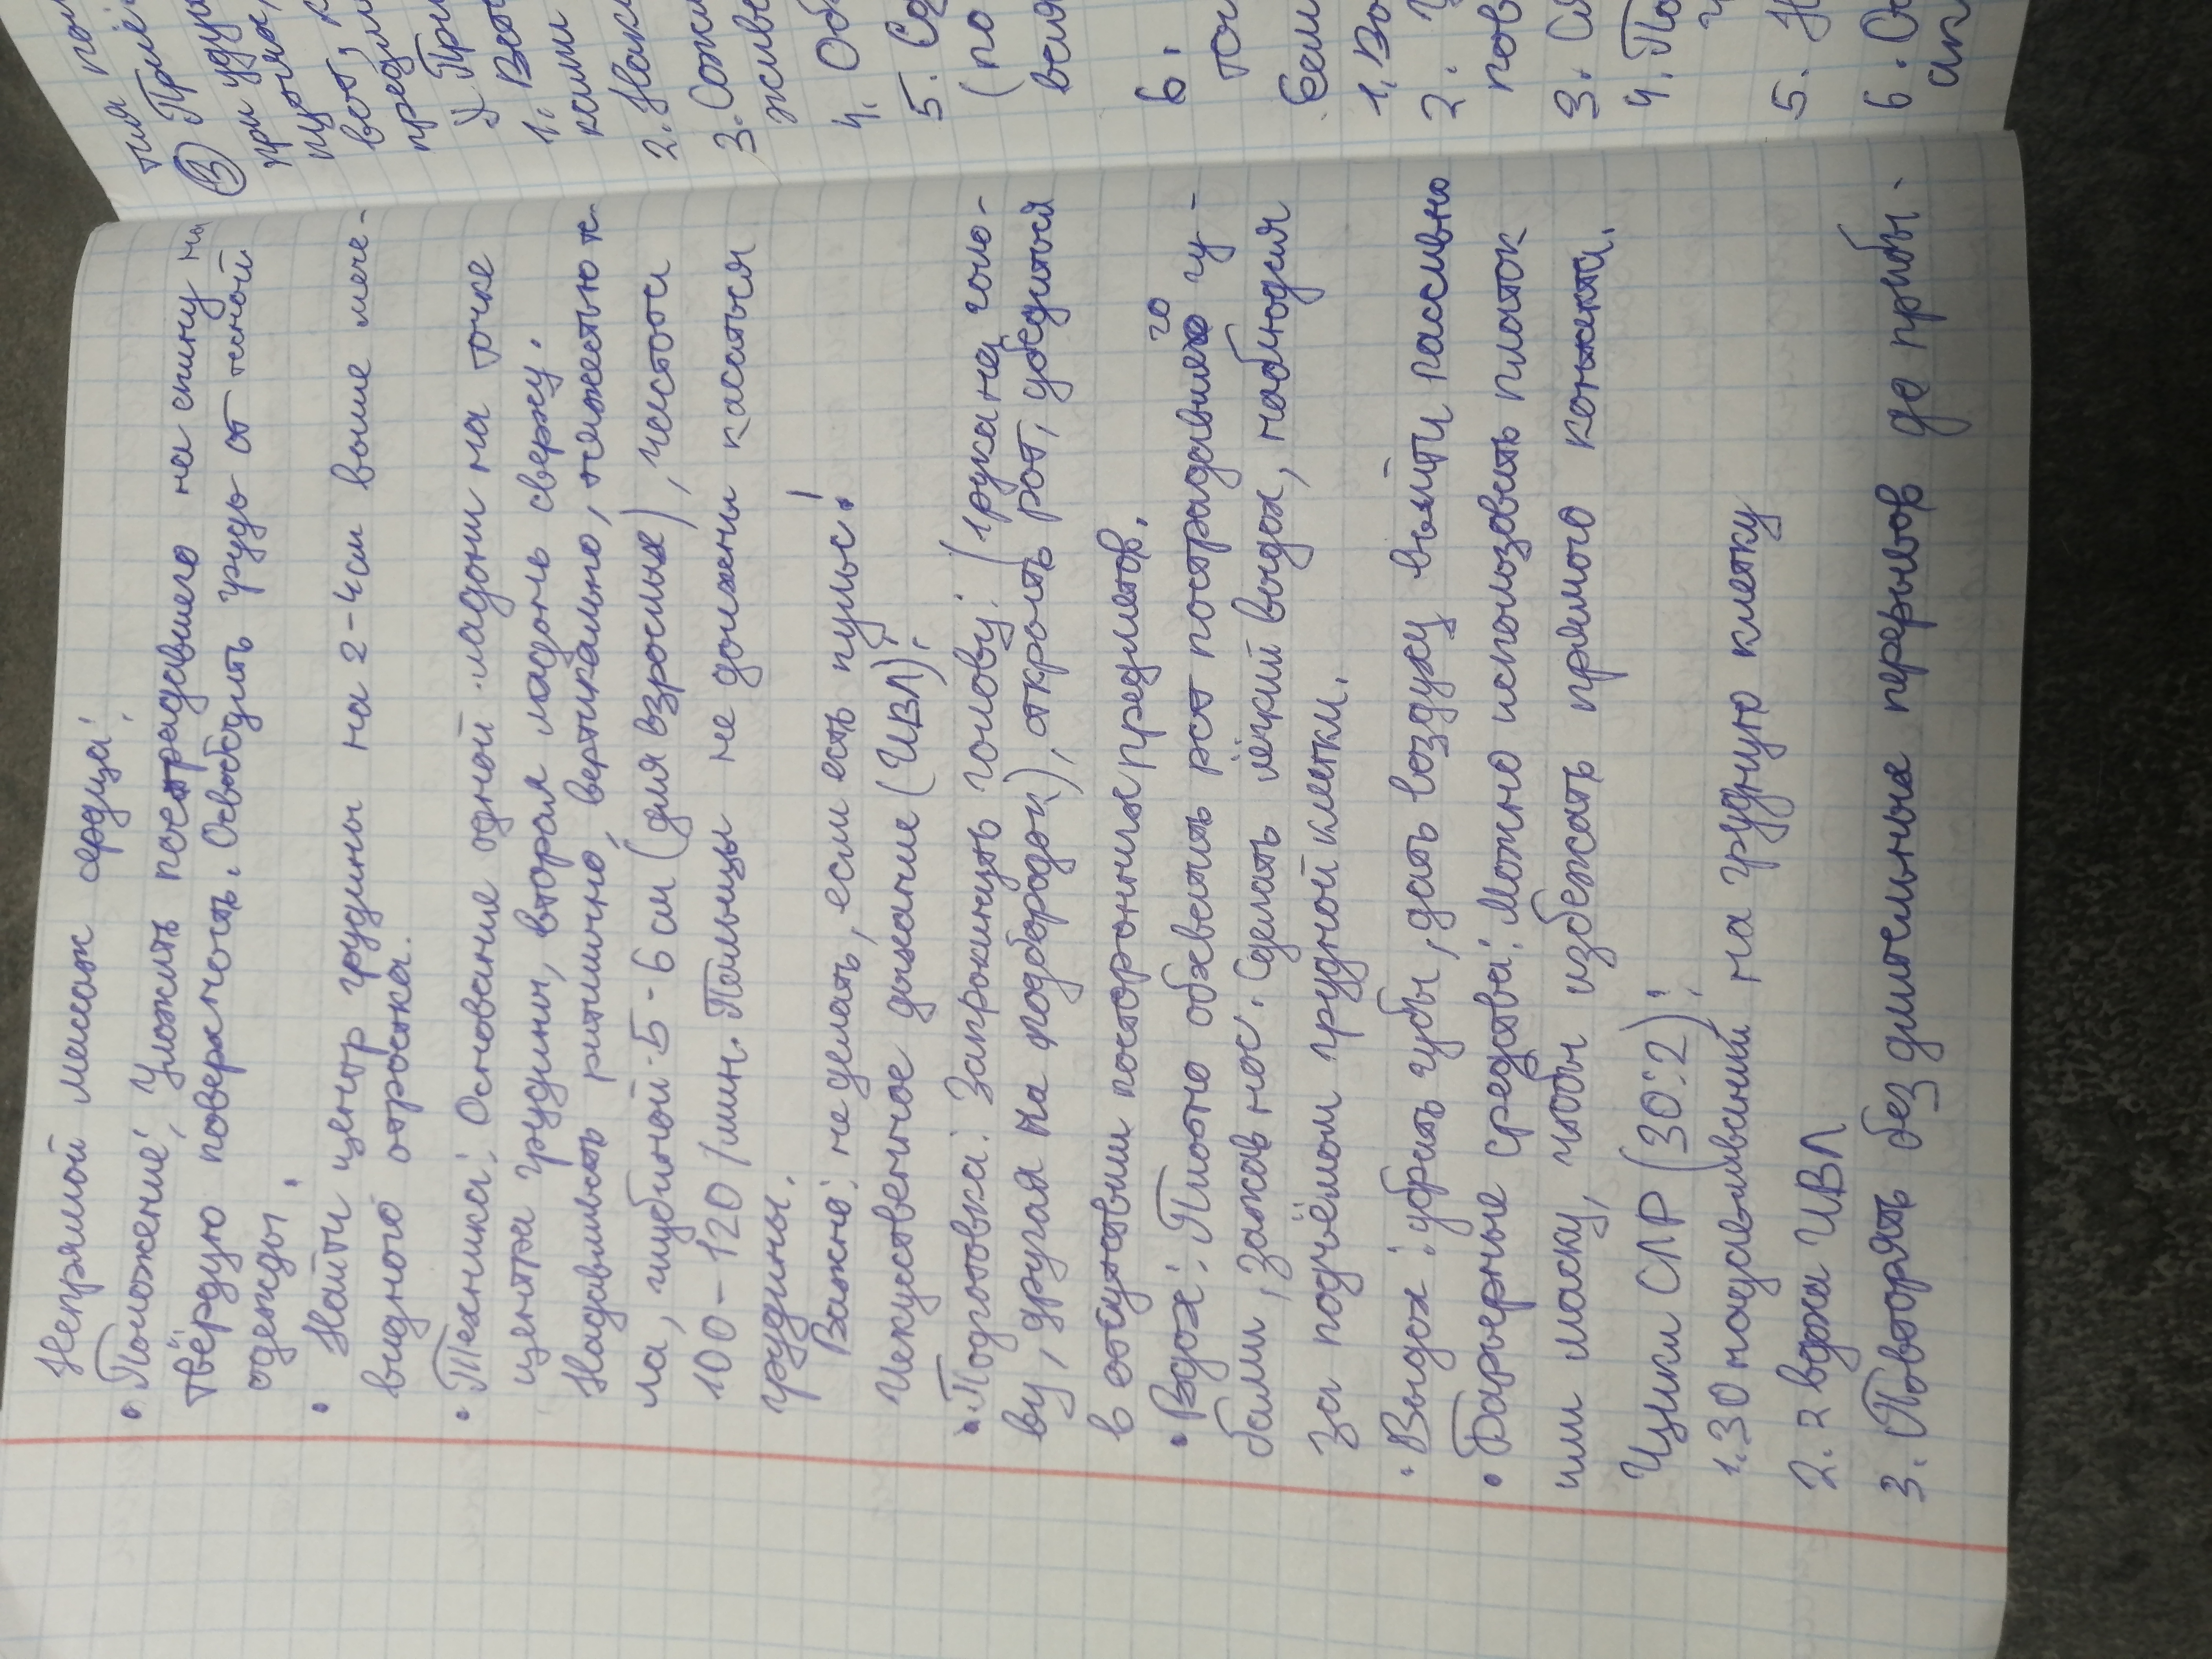 Непрямой массаж сердца:
• Положение: Уложить пострадавшего на спину на
твёрдую поверхность. Освободить грудь от тесной
одежды.
• Найти центр грудины на 2-4см выше мече-
видного отростка.
• Техника: Основание одной ладони на точке
центра грудины, вторая ладонь сверху.
Надавливать ритмично, вертикально, тяжестью те-
ла, глубиной 5-6 см (для взрослых), частота
100-120/мин. Пальцы не должны касаться
грудины.
Важно: не делать, если есть пульс!
Искусственное дыхание (ИВЛ):
• Подготовка: Запрокинуть голову: (1рука на голо-
ву, другая на подбородок), открыть рот, убедиться
в отсутствии посторонних предметов.
• Вдох: Плотно обхватить рот пострадавшего гу-
бами, зажав нос. Сделать лёгкий выдох, наблюдая
за подъёмом грудной клетки.
• Выдох: убрать губы, дать воздуху выйти пассивно
• Барьерные средства: Можно использовать платок
или маску, чтобы избежать прямого контакта.
Циклы СЛР (30:2):
1. 30 надавливаний на грудную клетку
2. 2 вдоха ИВЛ
3. Повторять без длительных перерывов до прибы-
тия
③ При
при уду
вот,
1.
2. Нак
3.
4. Об
5. Со
(по
6.
Если
1. Во
2.
пов
3. Сл
4. По
5. Н
6. Ос